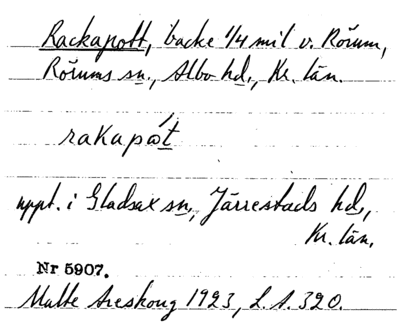 Rackapott, backe 1/4 mil v. Rörum,
Rörums sn., Albo hd., Kr. län.
rakapɷ́t
uppt. i Gladsax sn., Järrestads hd.,
Kr. län.
Nr 5907.
Malte Areskoug 1923, L.A. 320.